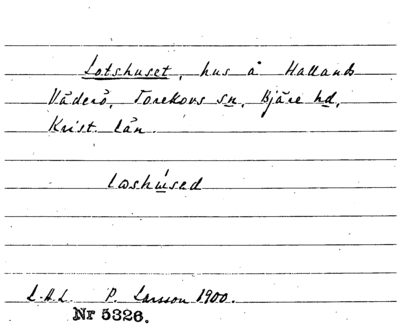 Lotshuset, hus å Hallands
Väderö, Torekovs sn, Bjäre hd,
Krist. län.
loshúsed
L.A.L. P. Larsson 1900.
Nr 5326.